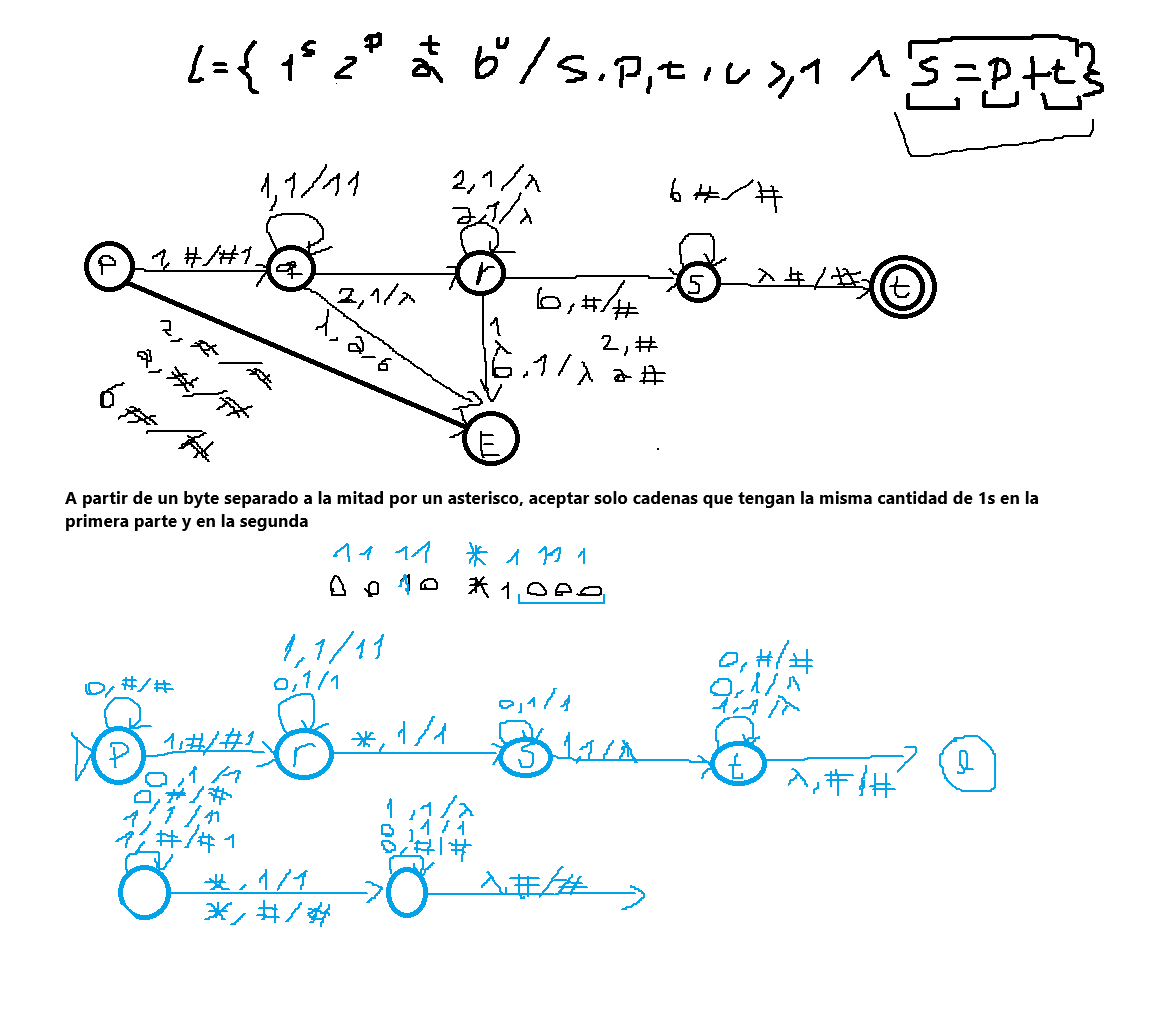 L={ 1^s 2^p a^t b^u / s.p,t,u >,1 ∧ s=p+t}
1,1/11
2,1/λ
a,1/λ
b #/#
P
1, #/#1
q
2,1/λ
r
b,#/#
s
λ #/#
t
1, a b
1
λ
b,1/λ
2,#
a #
2, #/#
a, #/#
b #/#
E
A partir de un byte separado a la mitad por un asterisco, aceptar solo cadenas que tengan la misma cantidad de 1s en la
primera parte y en la segunda
11 11 * 1 11 1
0 0 1 0 * 1,000
1,1/11
0,1/1
0,#/#
P
1,#/#1
r
*,1/1
0,1/1
S
1,1/λ
0,#/#
0,1/1
1,1/λ
t
λ,#/#
0,1/1
0,#/#
1,1/11
1,#/#1
*,1/1
*,#/#
1,1/λ
0,1/1
0,#/#
λ,#/#